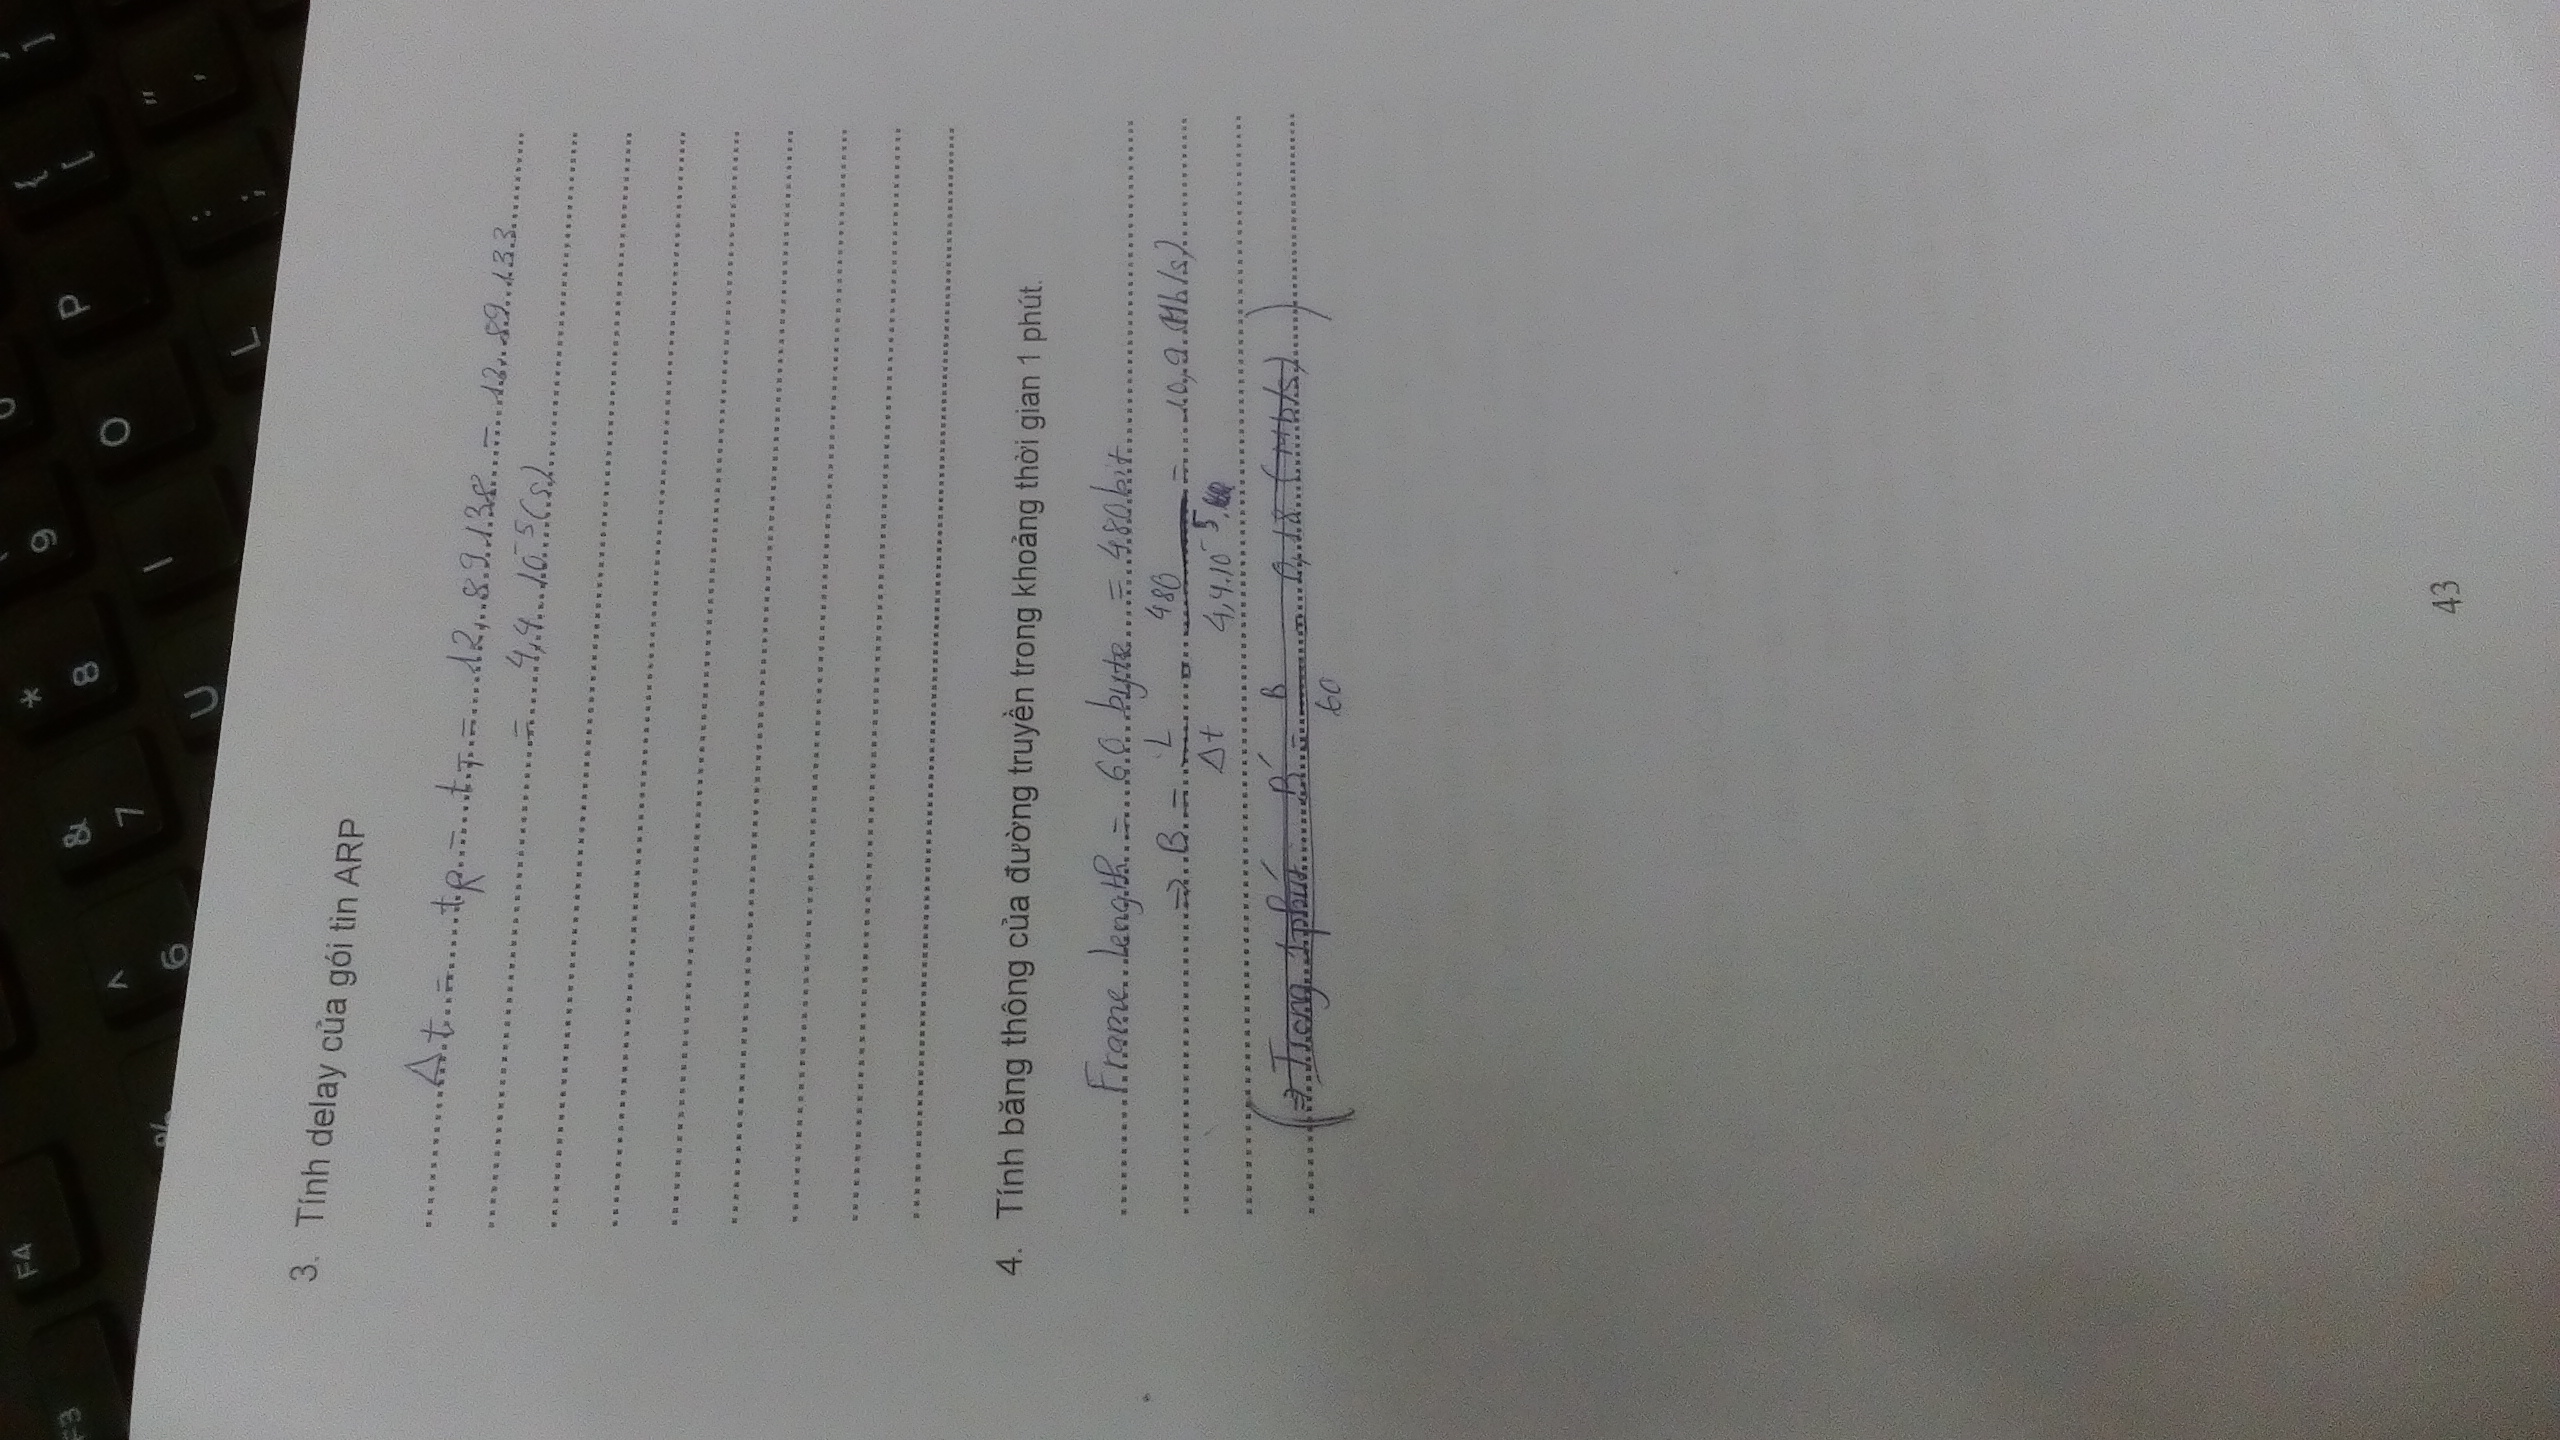 F3 F4 % ^ 6 & 7 * 8 9 U I O P { [ ] L : ; " ,
3. Tính delay của gói tin ARP
Δt = tR - tT = 12,89138 - 12,89133
= 4,4 10^-5 (s)
4. Tính băng thông của đường truyền trong khoảng thời gian 1 phút.
Frame length = 60 byte = 480 bit
⇒ B = L/Δt = 480/4,4.10^-5 = 10,9 (Mb/s)
(⇒ Trong 1 phút B' = B/60 = 0,18 (Mb/s))
43